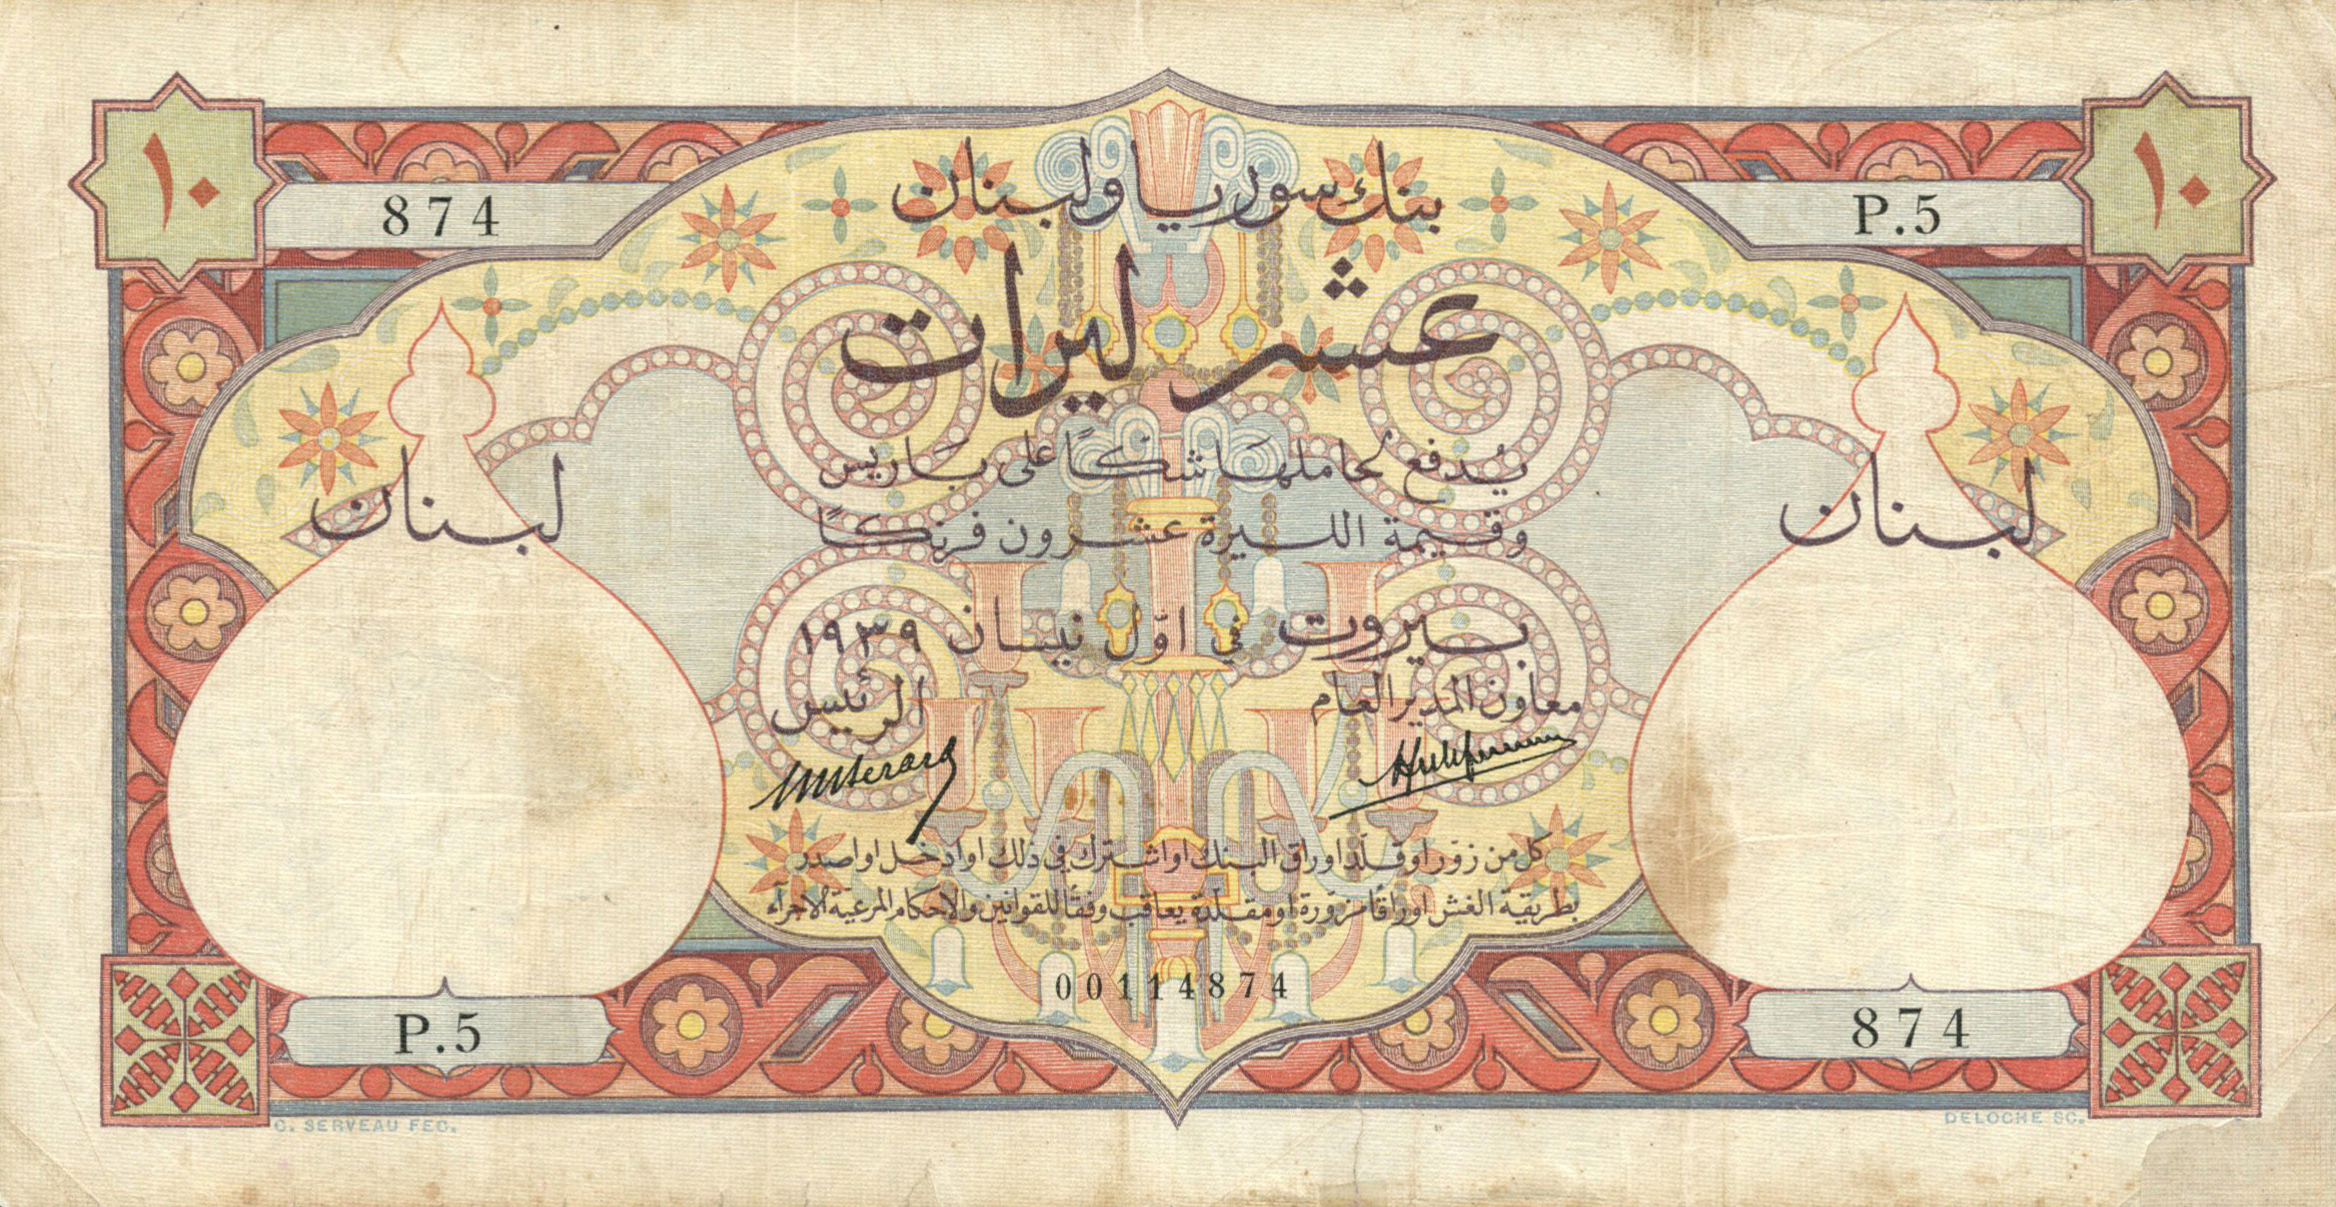 ١٠
١٠
874
P.5
بنك سوريا ولبنان
عشر ليرات
لبنان
لبنان
يُدفع لحاملها شكاً على باريس
وقيمة الليرة عشرون فرنكاً
بيروت في اوّل نيسان ١٩٣٩
معاون المدير العام
الرئيس
كل من زوّر او قلّد اوراق البنك او اشترك في ذلك او ادخل او اصدر
بطريقة الغش اوراقًا مزوّرة او مقلّدة يعاقب وفقًا للقوانين والاحكام المرعيّة الاجراء
00114874
P.5
874
C. SERVEAU FEC.
DELOCHE SC.